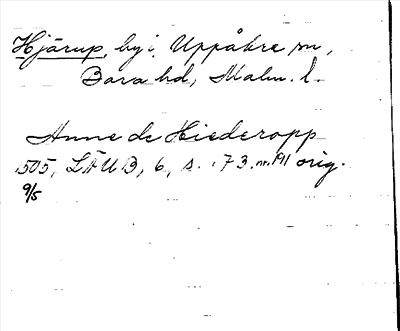 Hjärup, by i Uppåkra sn,
Bara hd, Malm. l.
Anne de Hiederopp
1505, LÄUB, 6, s. 173. nr. 191 orig.
9/5